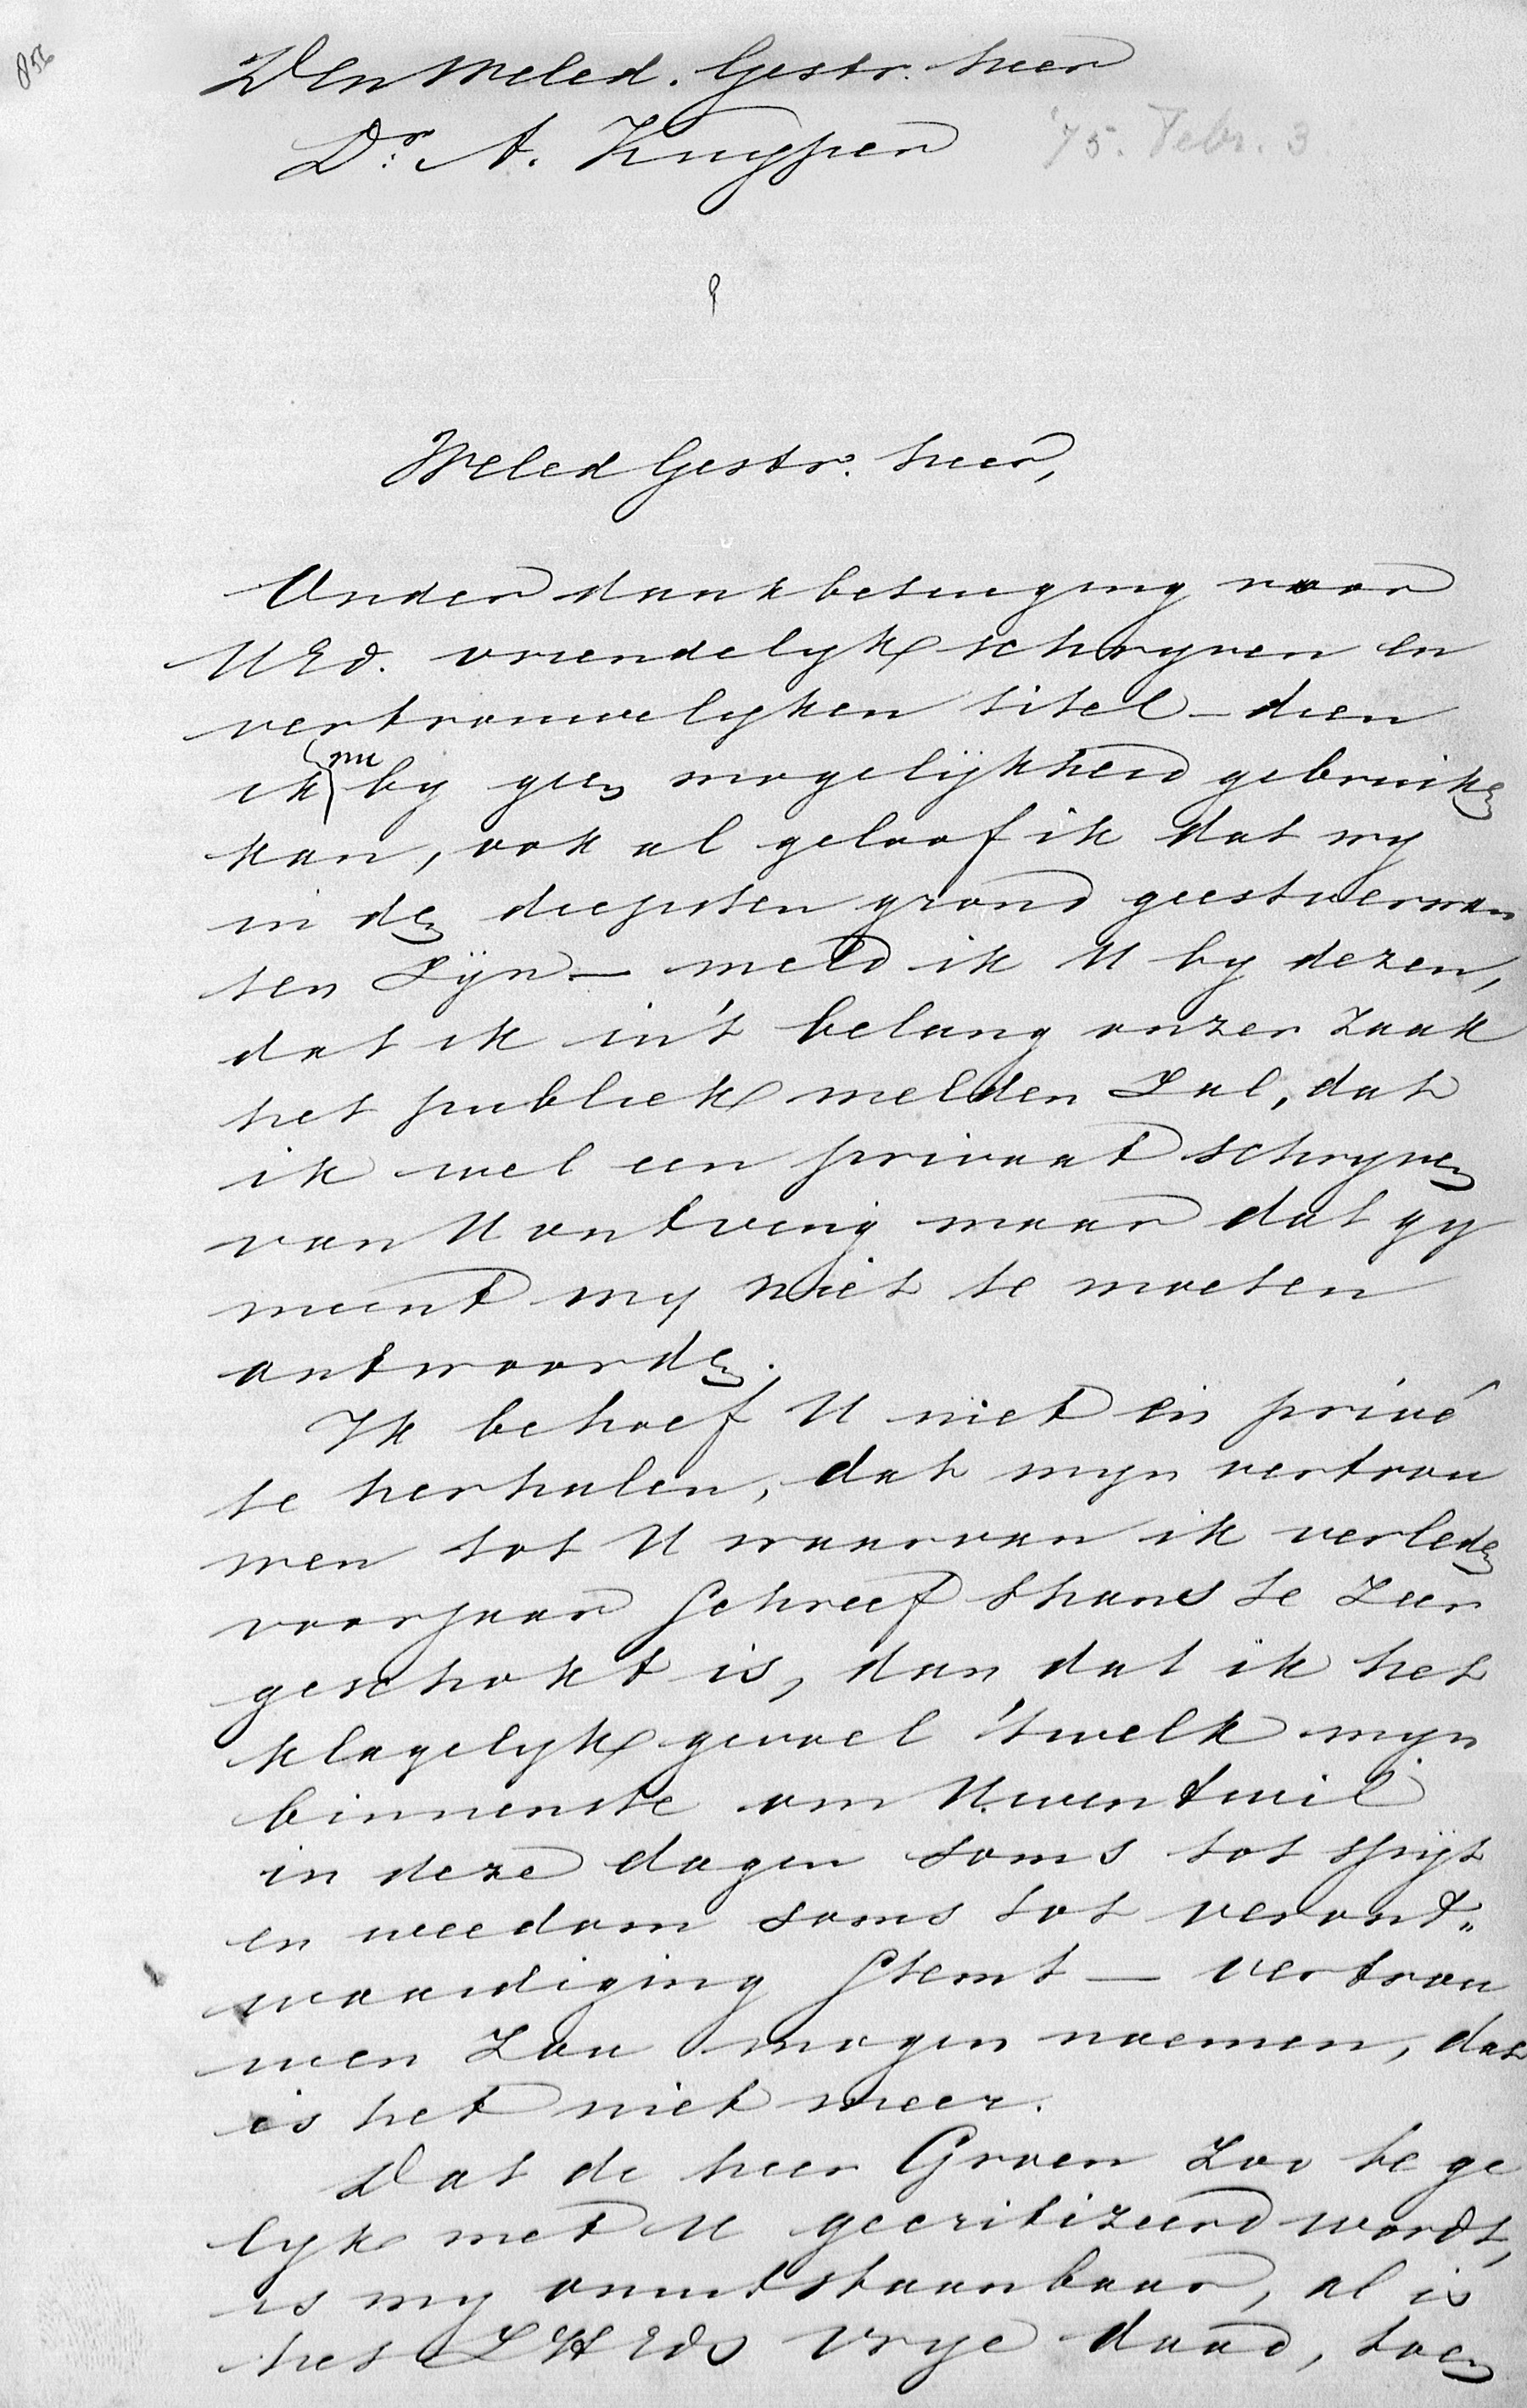 856
Den Weled. Gestr. heer
Dr. A. Kuyper
'75. Febr. 3
Weled Gestr. heer,
Onder dankbetuiging voor
UEd. vriendelyk schryven en
vertrouwelyken titel – dien
ik nu by geen mogelijkheid gebruiken
kan, ook al geloof ik dat wy
in den diepsten grond geestverwan
ten zijn – meld ik U by dezen,
dat ik in 't belang onzer zaak
het publiek melden zal, dat
ik wel een privaat schryven
van U ontving maar dat gy
meent my niet te moeten
antwoorden.
Ik behoef U niet en privé
te herhalen, dat myn vertrou
wen tot U waarvan ik verleden
voorjaar schreef thans te zeer
geschokt is, dan dat ik het
klagelyk gevoel 'twelk myn
binnenste om Uwentwil
in deze dagen soms tot spijt
en weedom soms tot veront„
waardiging stemt – vertrou
wen zou mogen noemen, dat
is het niet meer.
Dat de heer Groen zoo te ge
lyk met U gecritizeerd wordt,
is my onuitstaanbaar, al is
het ZHEds vrye daad, toen